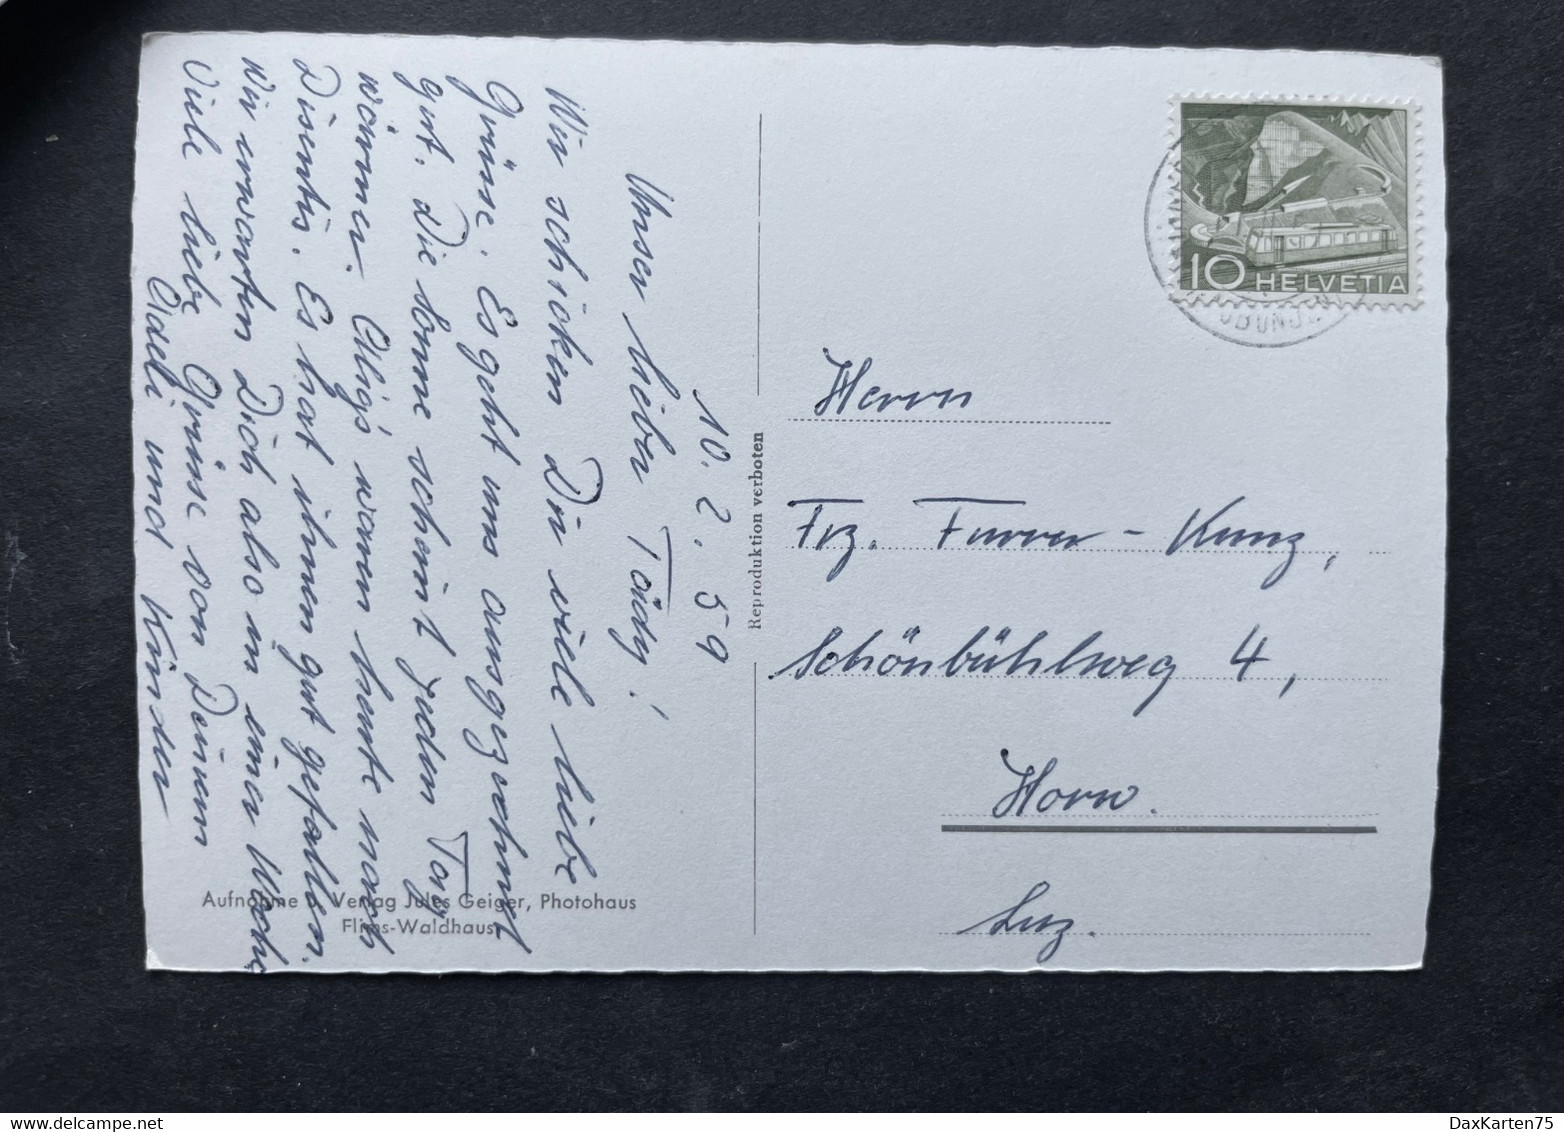 10. 2. 59
Unser lieber Tädy!
Wir schicken Dir viele liebe
Grüsse. Es geht uns ausgezeichnet
gut. Die Sonne scheint jeden Tag
wärmer. waren heute nach
Disentis. Es hat ihnen gut gefallen.
Wir erwarten Dich also in einer Woche
Viele liebe Grüsse von Deinem
Adeli und Kinder
Aufnahme Verlag Jules Geiger, Photohaus
Flims-Waldhaus
Reproduktion verboten
10 HELVETIA
Herrn
Frz. Furrer-Kunz,
Schönbühlweg 4,
Horw.
Luz.
DaxKarten75